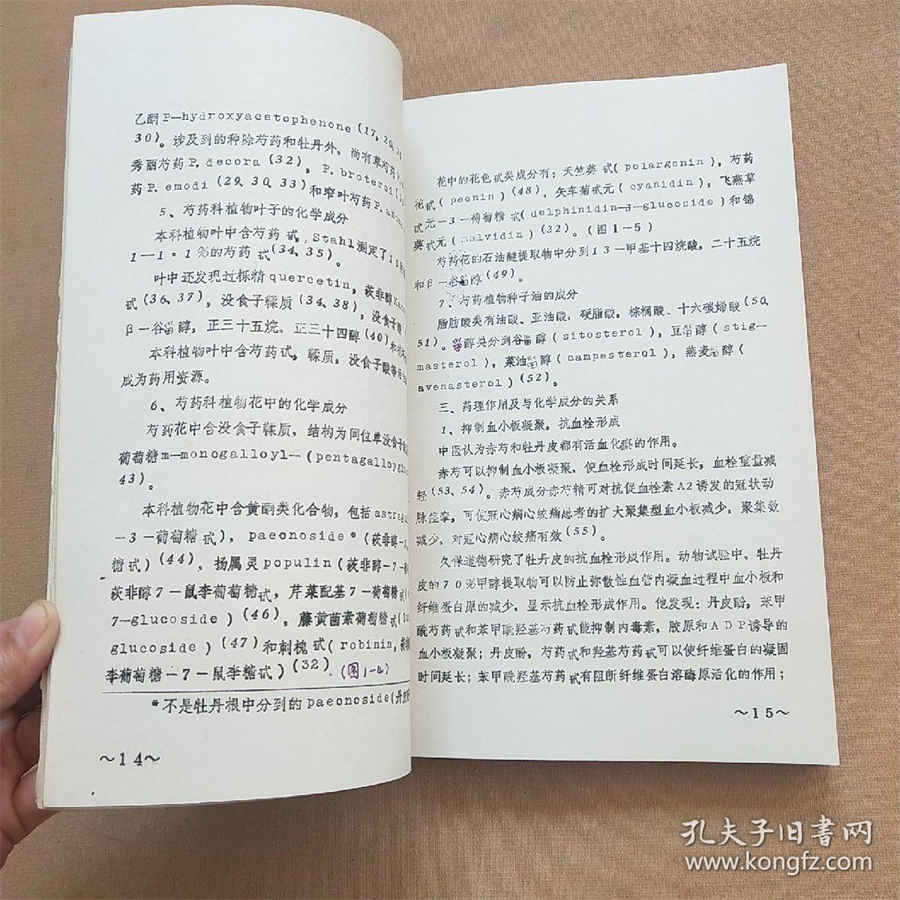 乙酮P—hydroxyacetophenone(17,20,
30)。涉及到的种除芍药和牡丹外,尚有草芍药
秀丽芍药P.decora(32),P.broteroi
药P.emodi(29,30,33)和窄叶芍药P.
5、芍药科植物叶子的化学成分
本科植物叶中含芍药甙,Stahl测定了15
1—1·1%的芍药甙(34,35)。
叶中还发现过栎精quercetin,莰非醇
甙(36,37),没食子鞣质(34,38),没食子
β—谷甾醇,正三十五烷,正三十四醇(40)和
本科植物叶中含芍药甙,鞣质,没食子酸等
成为药用资源。
6、芍药科植物花中的化学成分
芍药花中含没食子鞣质,结构为间位单没食子
葡萄糖m—monogalloyl—(pentagalloyl
43)。
本科植物花中含黄酮类化合物,包括astra
—3—葡萄糖甙),paeonoside*(莰非醇—
糖甙)(44),扬属灵populin(莰非醇—7—
莰非醇7—鼠李葡萄糖甙,芹菜配基7—葡萄糖甙
7—glucoside)(46),藤黄菌素葡萄糖甙(
glucoside)(47)和刺槐甙(robinin,
李葡萄糖—7—鼠李糖甙)(32)(图1—4)
*不是牡丹根中分到的paeonoside(丹
~14~
花中的花色甙类成分有:天竺葵甙(pelargonin),芍药
花甙(peonin)(48),矢车菊甙元(cyanidin),飞燕草
甙元—3—葡萄糖甙(delphinidin—3—glucoside)和锦
葵甙元(malvidin)(32)。(图1—5)
芍药花的石油醚提取物中分到13—甲基十四烷酸,二十五烷
和β—谷甾醇(49)。
7、芍药植物种子油的成分
脂肪酸类有油酸、亚油酸,硬脂酸,棕榈酸、十六碳烯酸(50,
51)。甾醇类分到谷甾醇(sitosterol),豆甾醇(stig—
masterol),菜油甾醇(campesterol),燕麦甾醇(
avenasterol)(52)。
三、药理作用及与化学成分的关系
1、抑制血小板凝聚,抗血栓形成
中医认为赤芍和牡丹皮都有活血化瘀的作用。
赤芍可以抑制血小板凝聚,使血栓形成时间延长,血栓重量减
轻(53,54)。赤芍成分赤芍精可对抗促血栓素A2诱发的冠状动
脉痉挛,可使冠心病心绞痛患者的扩大聚集型血小板减少,聚集数
减少,对冠心病心绞痛有效(55)。
久保道德研究了牡丹皮的抗血栓形成作用。动物试验中、牡丹
皮的70%甲醇提取物可以防止弥散性血管内凝血过程中血小板和
纤维蛋白原的减少,显示抗血栓形成作用。他发现:丹皮酚,苯甲
酰芍药甙和苯甲酰羟基芍药甙能抑制内毒素,胶原和ADP诱导的
血小板凝聚;丹皮酚,芍药甙和羟基芍药甙可以使纤维蛋白的凝固
时间延长;苯甲酰羟基芍药甙有阻断纤维蛋白溶酶原活化的作用;
~15~
孔夫子旧書网
www.kongfz.com